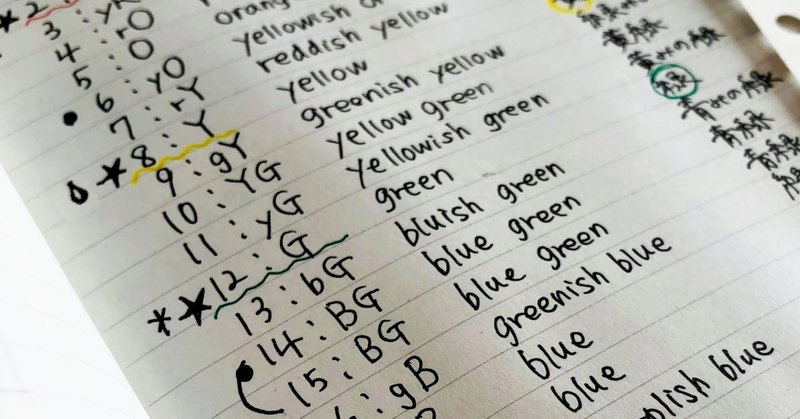 2
3 :
4 : rO
5 : O
6 : yO yellowish
7 : rY reddish yellow
★ 8 : Y yellow
9 : gY greenish yellow
10 : YG yellow green 黄緑
11 : yG yellowish green 黄みの緑
* ★ 12 : G green 緑
13 : bG bluish green 青みの緑
14 : BG blue green 青緑
15 : BG blue green 青緑
: gB greenish blue
blue
blue
plish blue